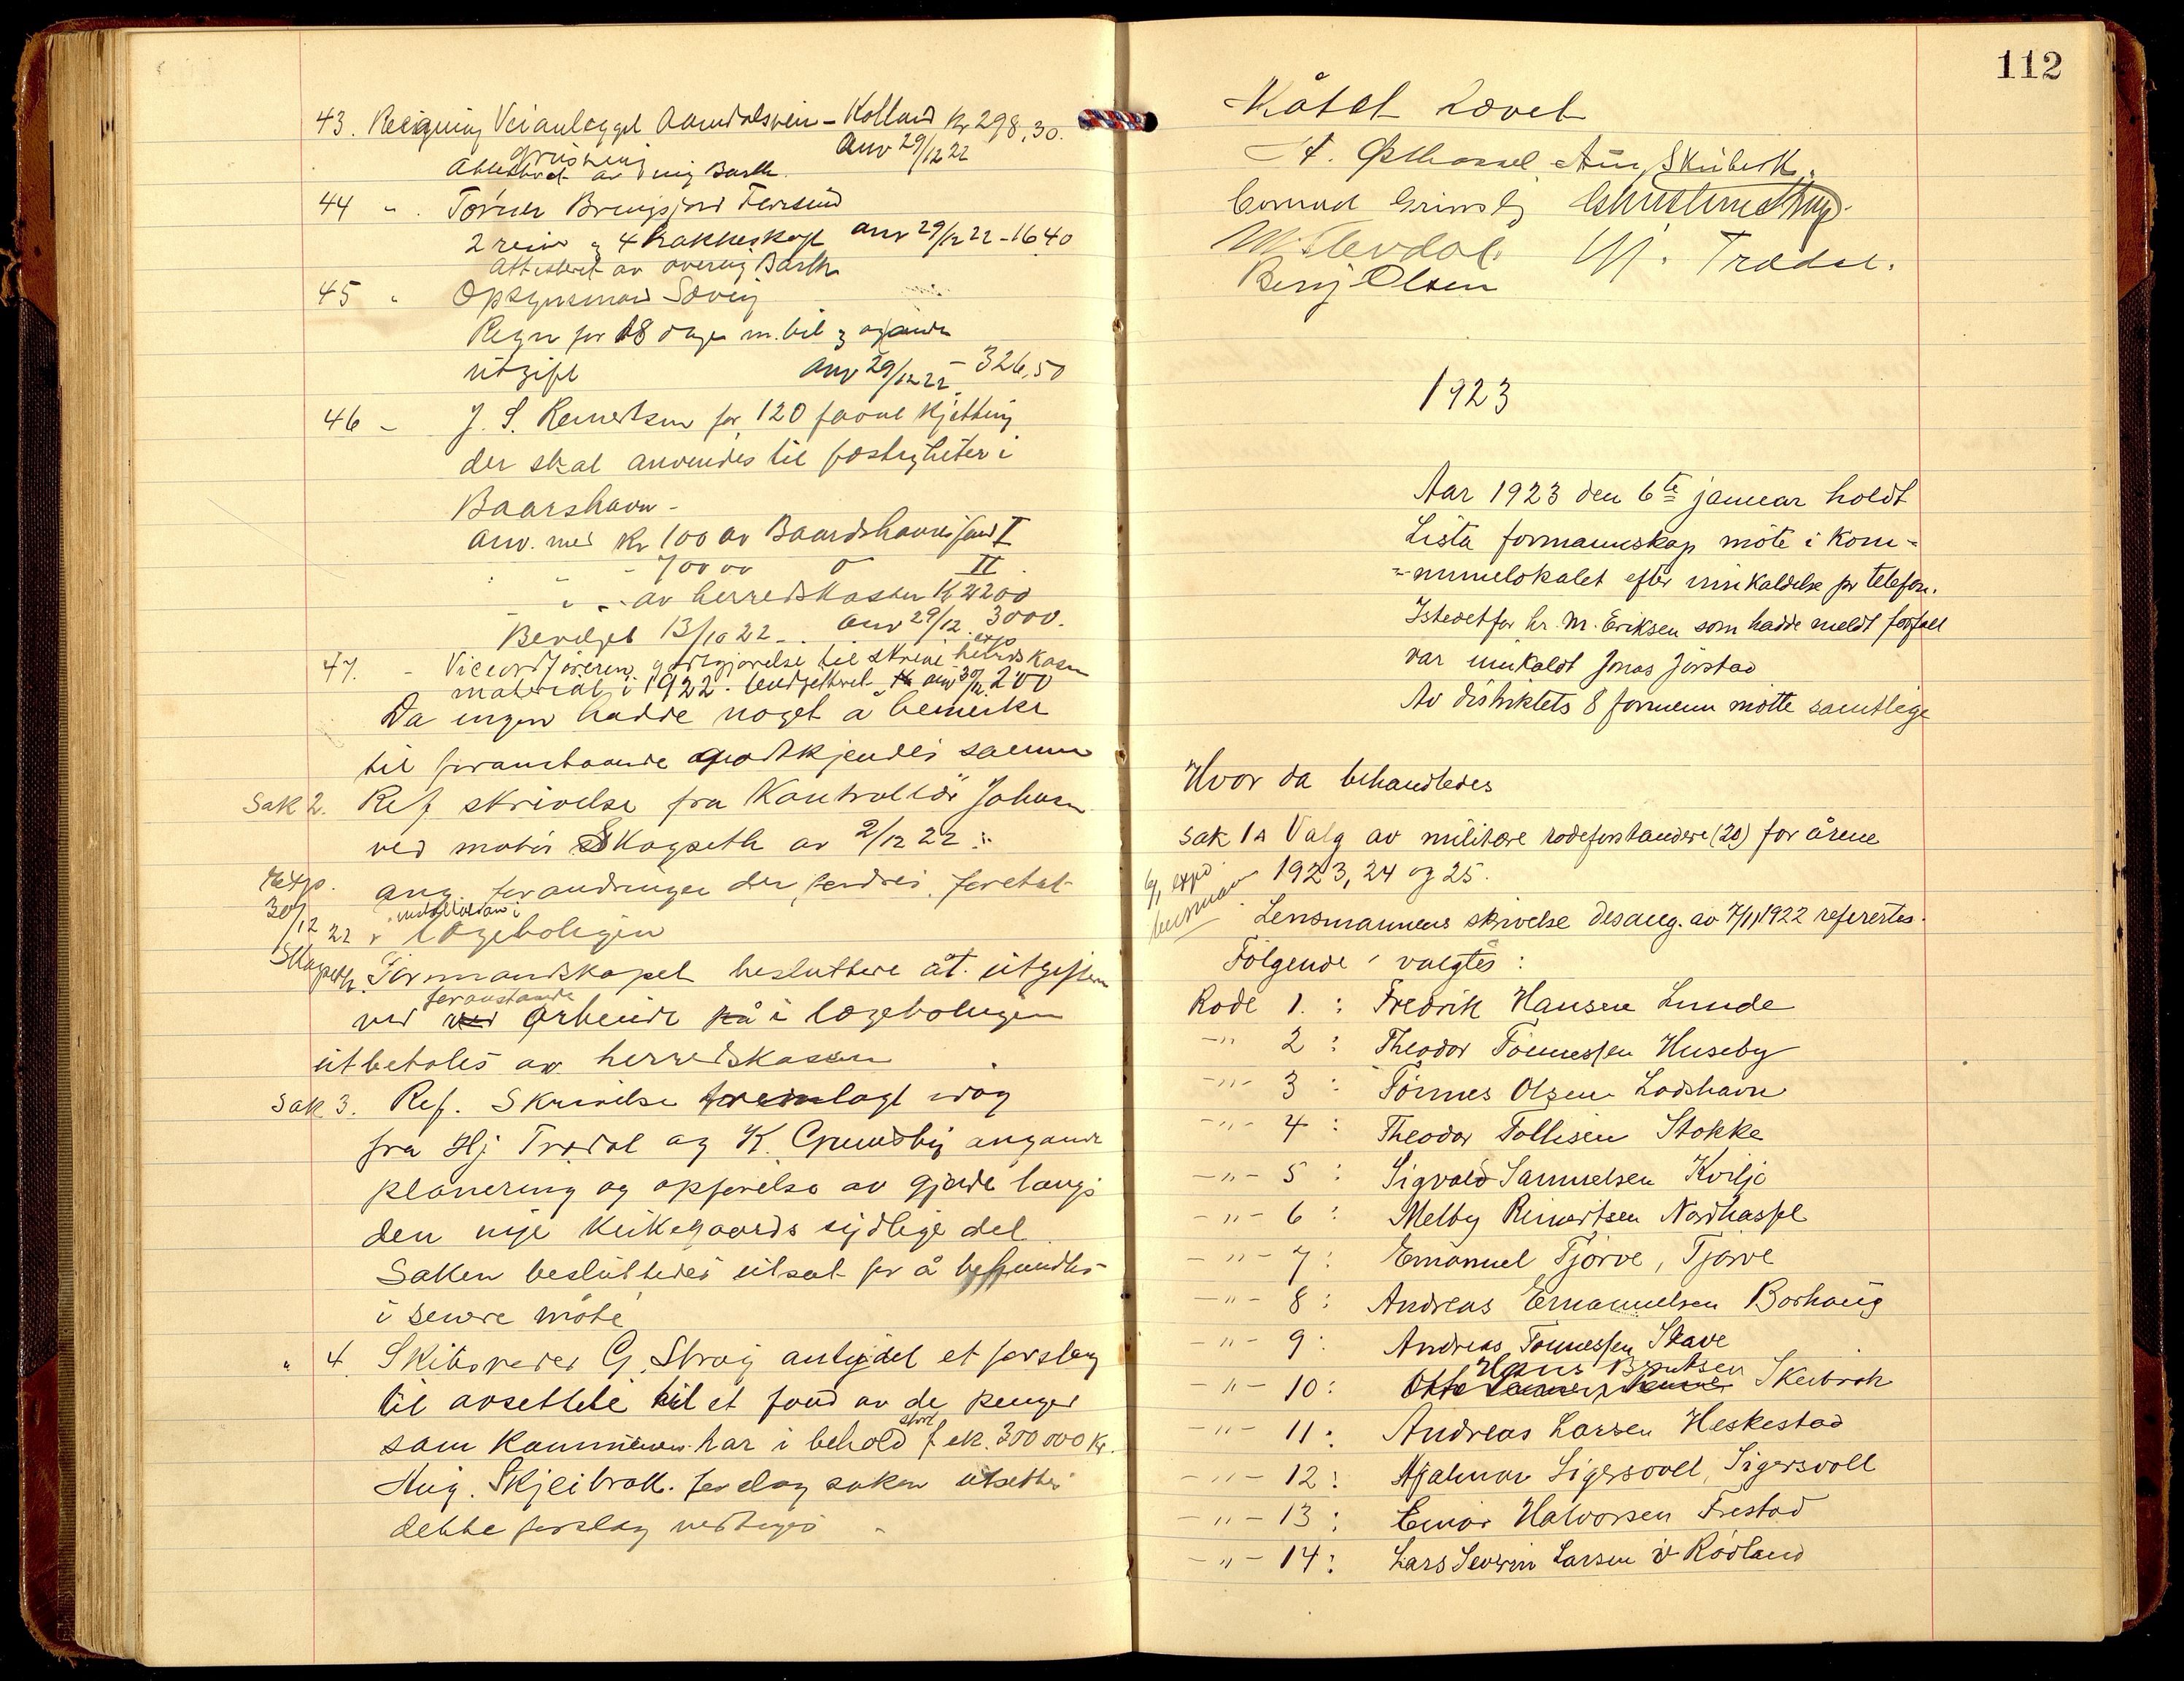 43. Regning Veianlegget Aamdalsveien - Kolland kr 298,30.
grusning anv 29/12 22
Attestert av Barth.
44 " . Torvald Bringsjord Farsund
2 reiser 4 hakkeskaft anv 29/12 22 - 16.40
Attestert av avening Barth
45 " Opsynsmand Sævig
Regn for 18 dage m. bil og andre
utgift anv 29/12 22 - 326,50
46 - J. S. Reinertsen for 120 favne kjetting
der skal anvendes til fastigheter i
Baarshavn -
anv. med kr 100 av Baardshavns fond I
" - 700 av d II
" - av herredskassen kr 2200
Bevilget 13/10 22 - anv 29/12. 3000.
47. - Viceordføreren godtgjørelse til skrive herredskasse
material i 1922. budgettert anv 30/12. 200
Da ingen hadde noget a bemerke
til foranstaaende godtkjendtes samme
Sak 2. Ref skrivelse fra Kontrollør Johnsen
ved motor Skogseth av 2/12 22 :
Exp. ang. forandringer der foretat
30/12 22 installation i
lægeboligen
Skogseth. Formandskapet besluttere at utgiften
foranstaaende
ved ved arbeide på i lægeboligen
utbetales av herredskassen
Sak 3. Ref. Skrivelse fremlagt idag
fra Hj Trædal og K. Grimsby angaande
planering og opførelse av gjerde langs
den nye kirkegaards sydlige del
Saken besluttedes utsat for å behandles
i senere møte
" 4. Skibsreder G. Stray antydet et forslag
til avsettelse til et fond av de penger
som kommunen har i behold stort f ek. 300 000 kr.
Aug. Skjeibrok. forslog saken utsettes
dette forslag vedtages -
112
Møtet hævet
A. Østhassel Aug. Skeibrok.
Conrad Grimsby G Stray
M. Elevdal. Hj. Trædal.
Berj Olsen
1923
Aar 1923 den 6te januar holdt
Lista formannskap møte i kom-
-munelokalet efter innkaldelse pr telefon.
Istedetfor hr. M. Eriksen som hadde meldt forfall
var innkaldt Jonas Jørstad
Av distriktets 8 formenn møtte samtlige
Hvor da behandledes
Sak 1 A Valg av militære rodeforstandere (20) for årene
6/1 exp. lensman 1923, 24 og 25.
Lensmannens skrivelse desang. av 7/11 1922 refertes.
Følgende valgtes :
Rode 1. : Fredrik Hansen Lunde
-"- 2 : Theodor Tønnessen Huseby
-"- 3 : Tønnes Olsen Lodshavn
-"- 4 : Theodor Tollisen Stokke
-"- 5 : Sigvald Samuelsen Kviljo
-"- 6 : Melby Reinertsen Nordhassel
-"- 7 : Emanuel Tjørve, Tjørve
-"- 8 : Andreas Emanuelsen Borhaug
-"- 9 : Andreas Tønnessen Stave
Hans Berntsen
-"- 10 : Otto Skeibrok
-"- 11 : Andreas Larsen Heskestad
-"- 12 : Hjalmar Sigersvoll, Sigersvoll
-"- 13 : Einar Halvorsen Frestad
-"- 14 : Lars Severin Larsen i Rødland